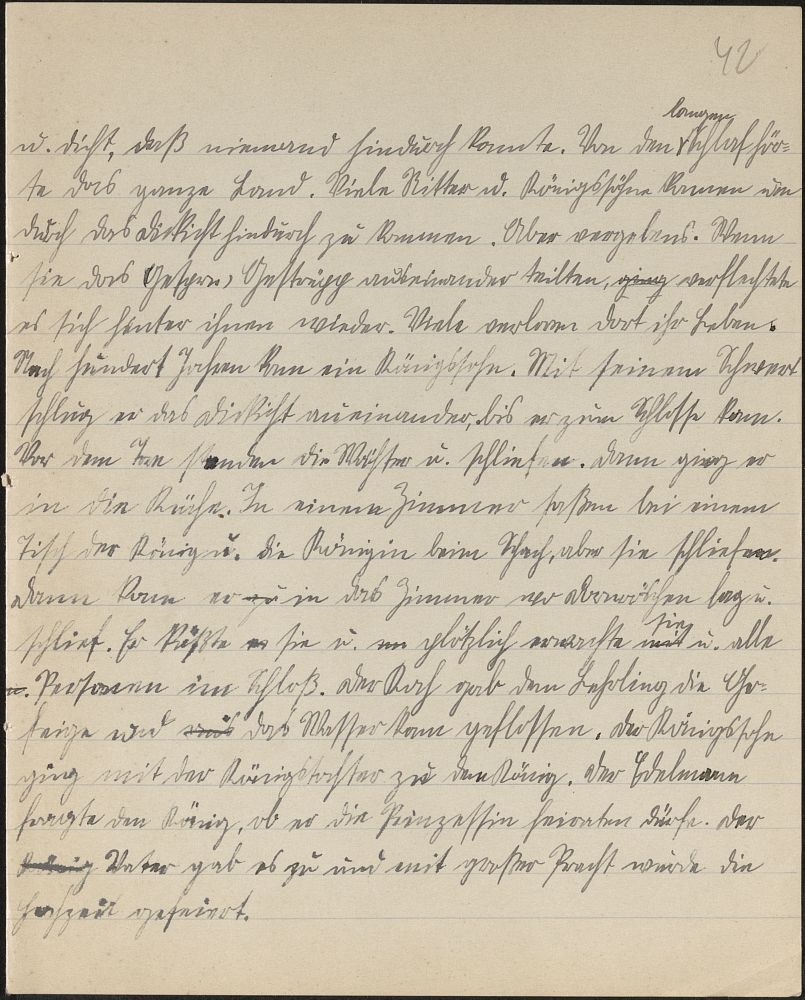 42
langen
u. dicht, daß niemand hindurch konnte. Von den Schlaf hör=
te das ganze Land. Viele Ritter u. Königssöhne kamen um
durch das Dickicht hindurch zu kommen. Aber vergebens. Wenn
sie das Gestrüpp auseinander teilten, ging verflechtete
es sich hinter ihnen wieder. Viele verloren dort ihr Leben.
Nach hundert Jahren kam ein Königssohn. Mit seinem Schwert
schlug er das Dickicht aueinander, bis er zum Schlosse kam.
Vor dem Tore standen die Wächter u. schliefen. Dann ging er
in die Küche. In einem Zimmer saßen bei einem
Tisch der König u. die Königin beim Schach, aber sie schliefen.
Dann kam er zu in das Zimmer wo Dornröschen lag u.
schlief. Er küßte es sie u. plötzlich erwachte sie mit u. alle
u. Personen im Schloß. Der Koch gab dem Lehrling die Ohr=
feige und das Wasser kam geflossen. Der Königssohn
ging mit der Königstochter zu dem König. Der Edelmann
fragte den König, ob er die Prinzessin heiraten dürfe. Der
König Vater gab es zu und mit großer Pracht wurde die
Hochzeit gefeiert.